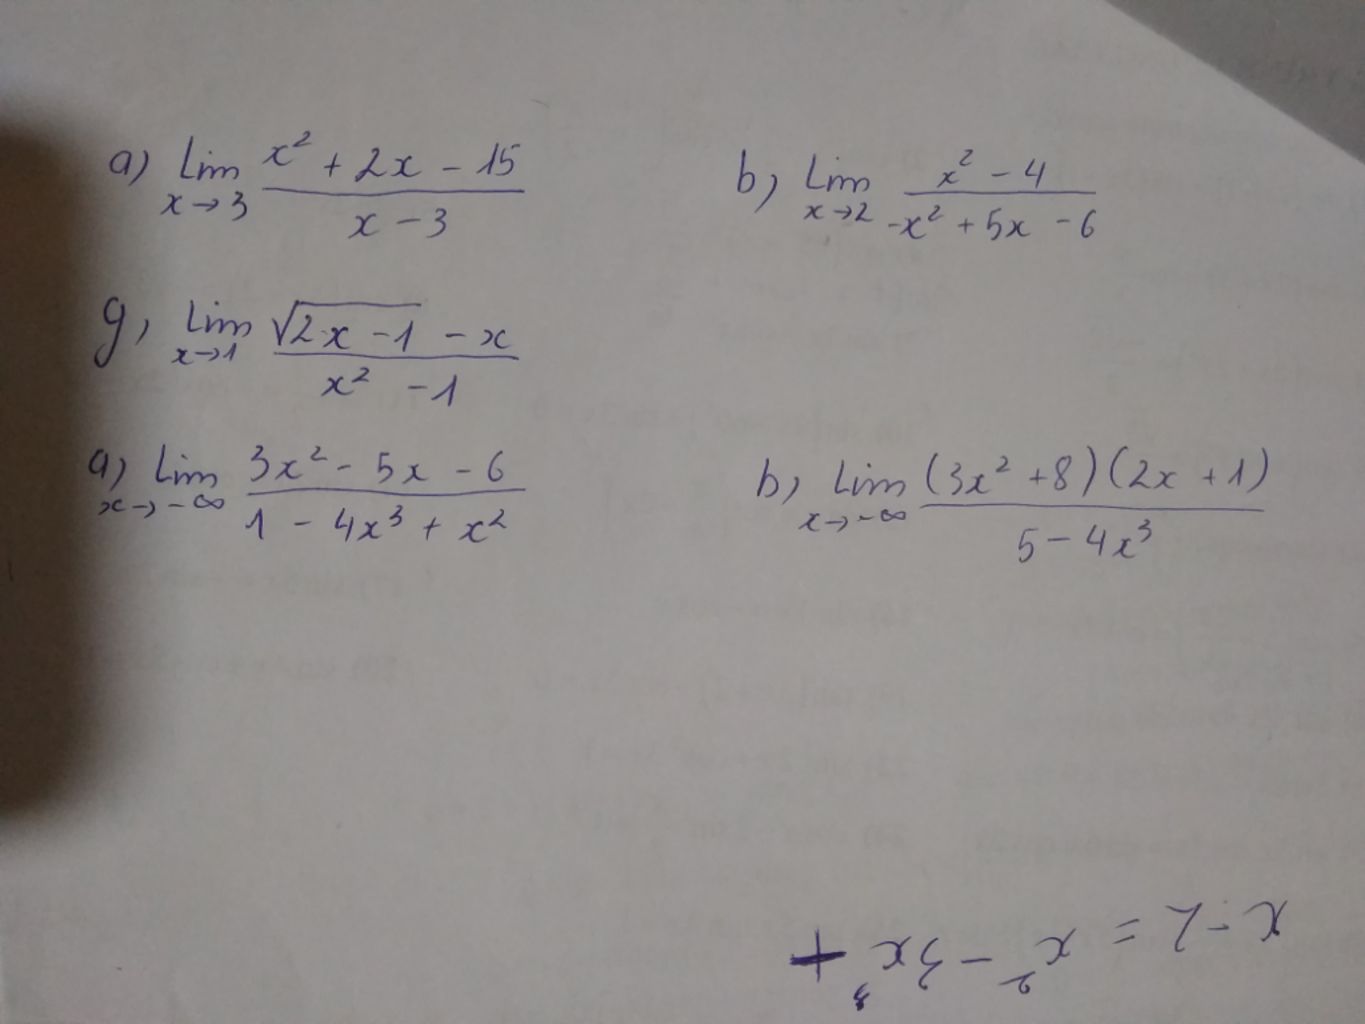 a) lim x→3 (x² + 2x - 15)/(x - 3)
b) lim x→2 (x² - 4)/(-x² + 5x - 6)
g) lim x→1 (√(2x - 1) - x)/(x² - 1)
a) lim x→-∞ (3x² - 5x - 6)/(1 - 4x³ + x²)
b) lim x→-∞ (3x² + 8)(2x + 1)/(5 - 4x³)